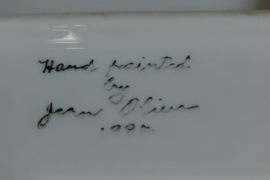 Hand painted
by
Jean Oliver